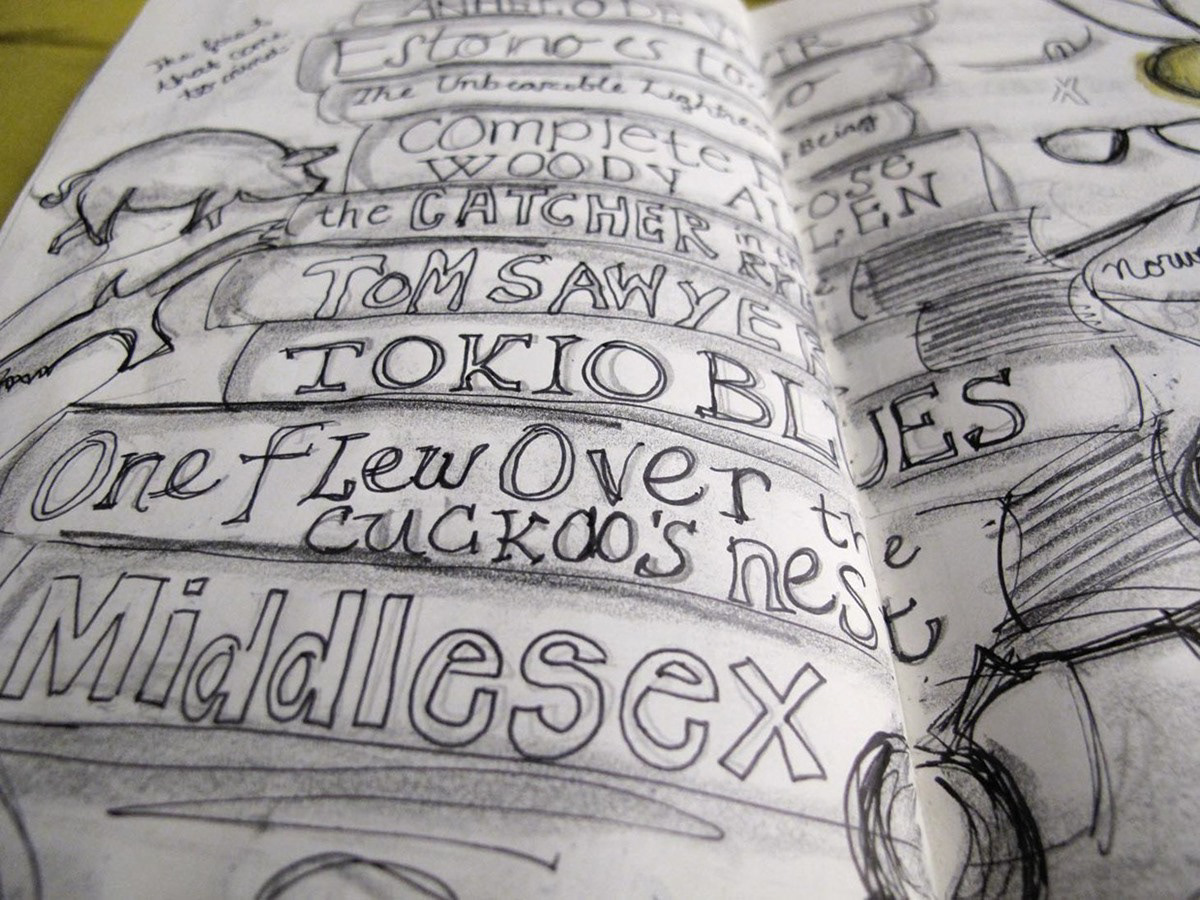 The first
that come
to mind:
ANHELO DE VIVIR
Esto no es todo
The Unbearable Lightness of Being
Complete Prose
WOODY ALLEN
the CATCHER in the RYE
TOM SAWYER
TOKIO BLUES
One fLew Over the
cuckoo's nest
Middlesex
X